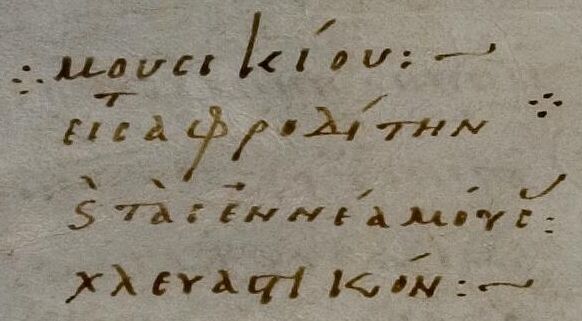 ⁘ μουσικίου :~
εἰς τ ἀφροδίτην ⁘
ϛ̀ τὰς ἐννέα μούσ :
χλευαστικόν :~